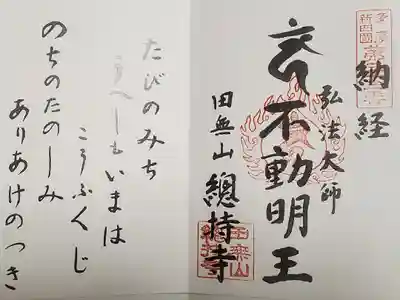 多摩
新四國
納経
弘法大師
不動明王
田無山 總持寺
田無山
總持寺
たびのみち
うへしもいまは
こうふくじ
のちのたのしみ
ありあけのつき